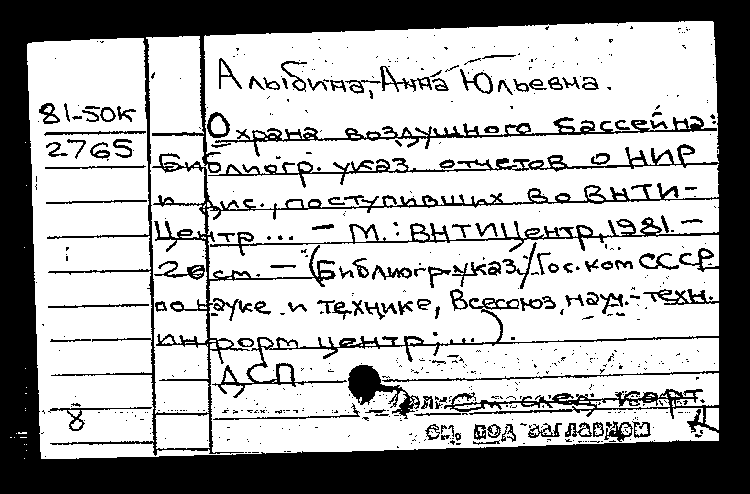 Альбина, Анна Юльевна.
81-50к
2765
Охрана воздушного бассейна:
Библиогр. указ. отчетов о НИР
и дис., поступивших во ВНТИ-
Центр ... – М.: ВНТИЦентр, 1981. –
20 см. – (Библиогр. указ. / Гос. ком СССР
по науке и технике, Всесоюз. науч.-техн.
информ. центр; ...).
ДСП
См. след. карт.
8
см. под заглавием